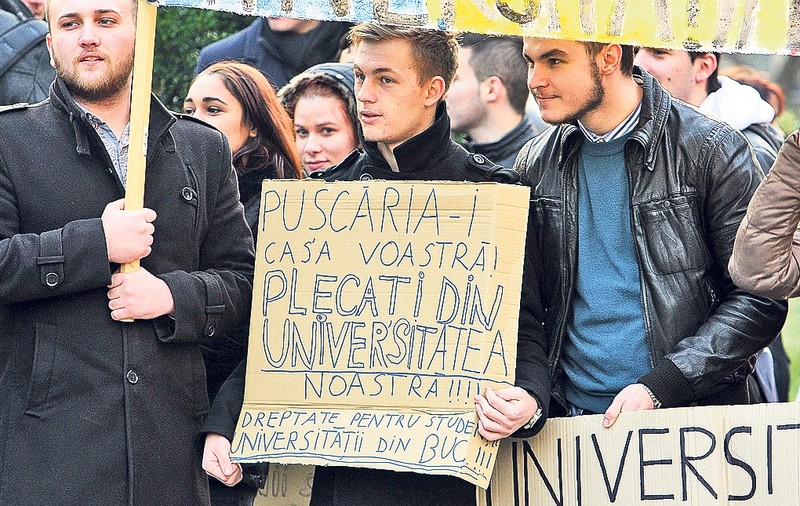 PUSCĂRIA-I
CASA VOASTRĂ!
PLECATI DIN
UNIVERSITATEA
NOASTRĂ!!!!
DREPTATE PENTRU STUDE
UNIVERSITĂȚII DIN BUC
UNIVERSIT